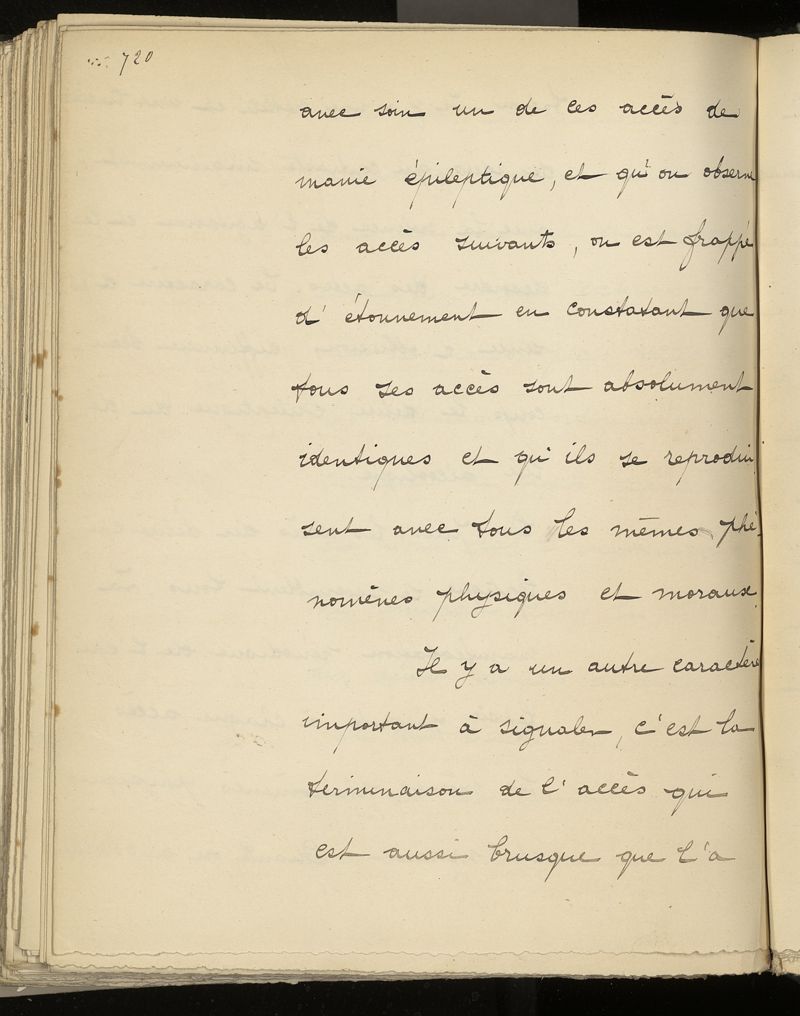 720
avec soin un de ces accès de
manie épileptique, et qu'on observe
les accès suivants, on est frappé
d'étonnement en constatant que
tous ses accès sont absolument
identiques et qu'ils se reprodui
sent avec tous les mêmes phé-
nomènes physiques et moraux.
Il y a un autre caractère
important à signaler, c'est la
terminaison de l'accès qui
est aussi brusque que l'a